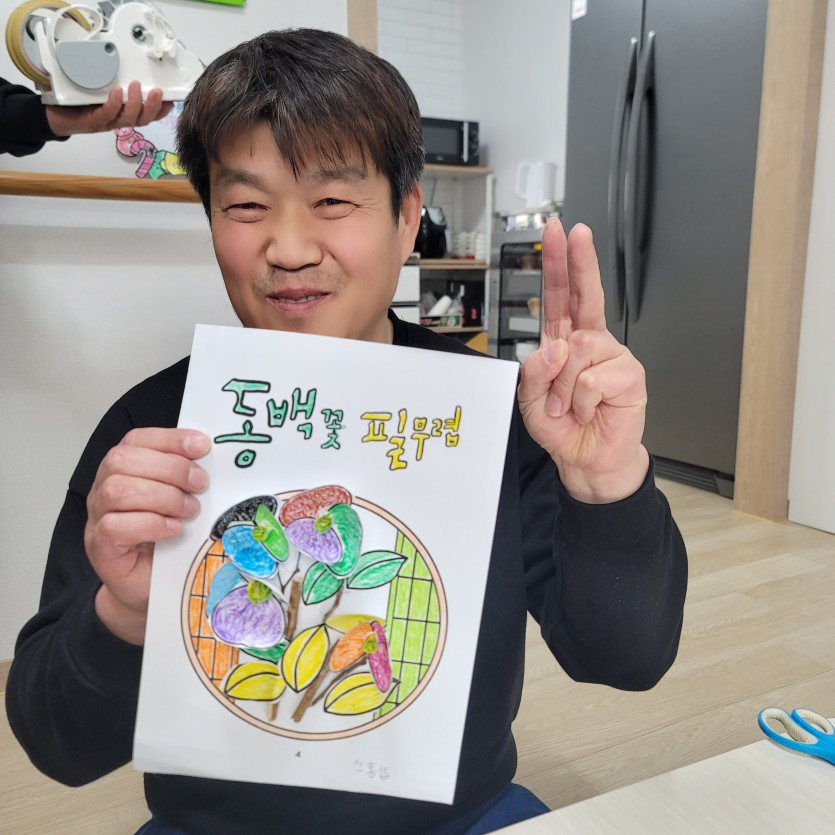 동백꽃 필무렵
4
신홍섭